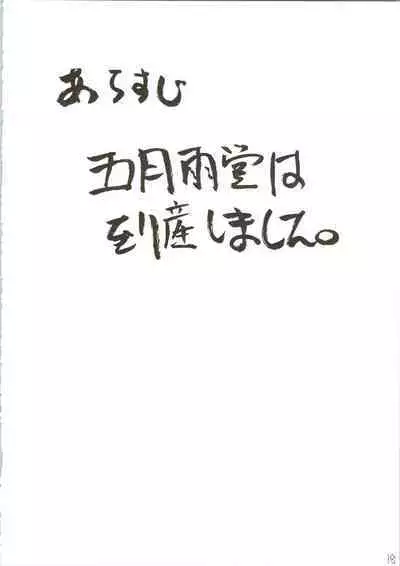 あらすじ
五月雨堂は
到産しました。